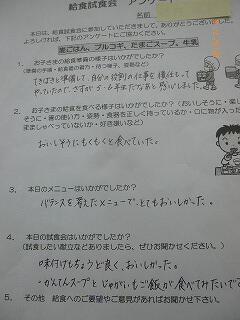 給食試食会 アンケート
名前
本日は、給食試食会に参加していただきまして、ありがとうございました。
よろしければ、下記のアンケートにご協力ください。
麦ごはん、プルコギ、たまごスープ、牛乳
1. お子さまの給食準備の様子はいかがでしたか?
(準備の手順・給食着の着方・待つ様子、姿勢など)
てきぱきと準備して、自分の役割の仕事を
2. お子さまの給食を食べる様子はいかがでしたか?(おいしそうに・楽し
そうに・箸の使い方・姿勢・食器を正しく持っているか・口に物が入った
ましゃべっていないか・好き嫌いなど)
おいしそうにもくもくと食べていた。
3. 本日のメニューはいかがでしたか?
バランスを考えたメニューで、とてもおいしかった。
4. 本日の試食会はいかがでしたか?
(試食したい献立などありましたら、ぜひお聞かせください。)
味付けもちょうど良く、おいしかった。
・かんてんスープとじゃがいもご飯が食べてみたいです
5. その他 給食へのご要望やご意見があればお聞かせ下さい。